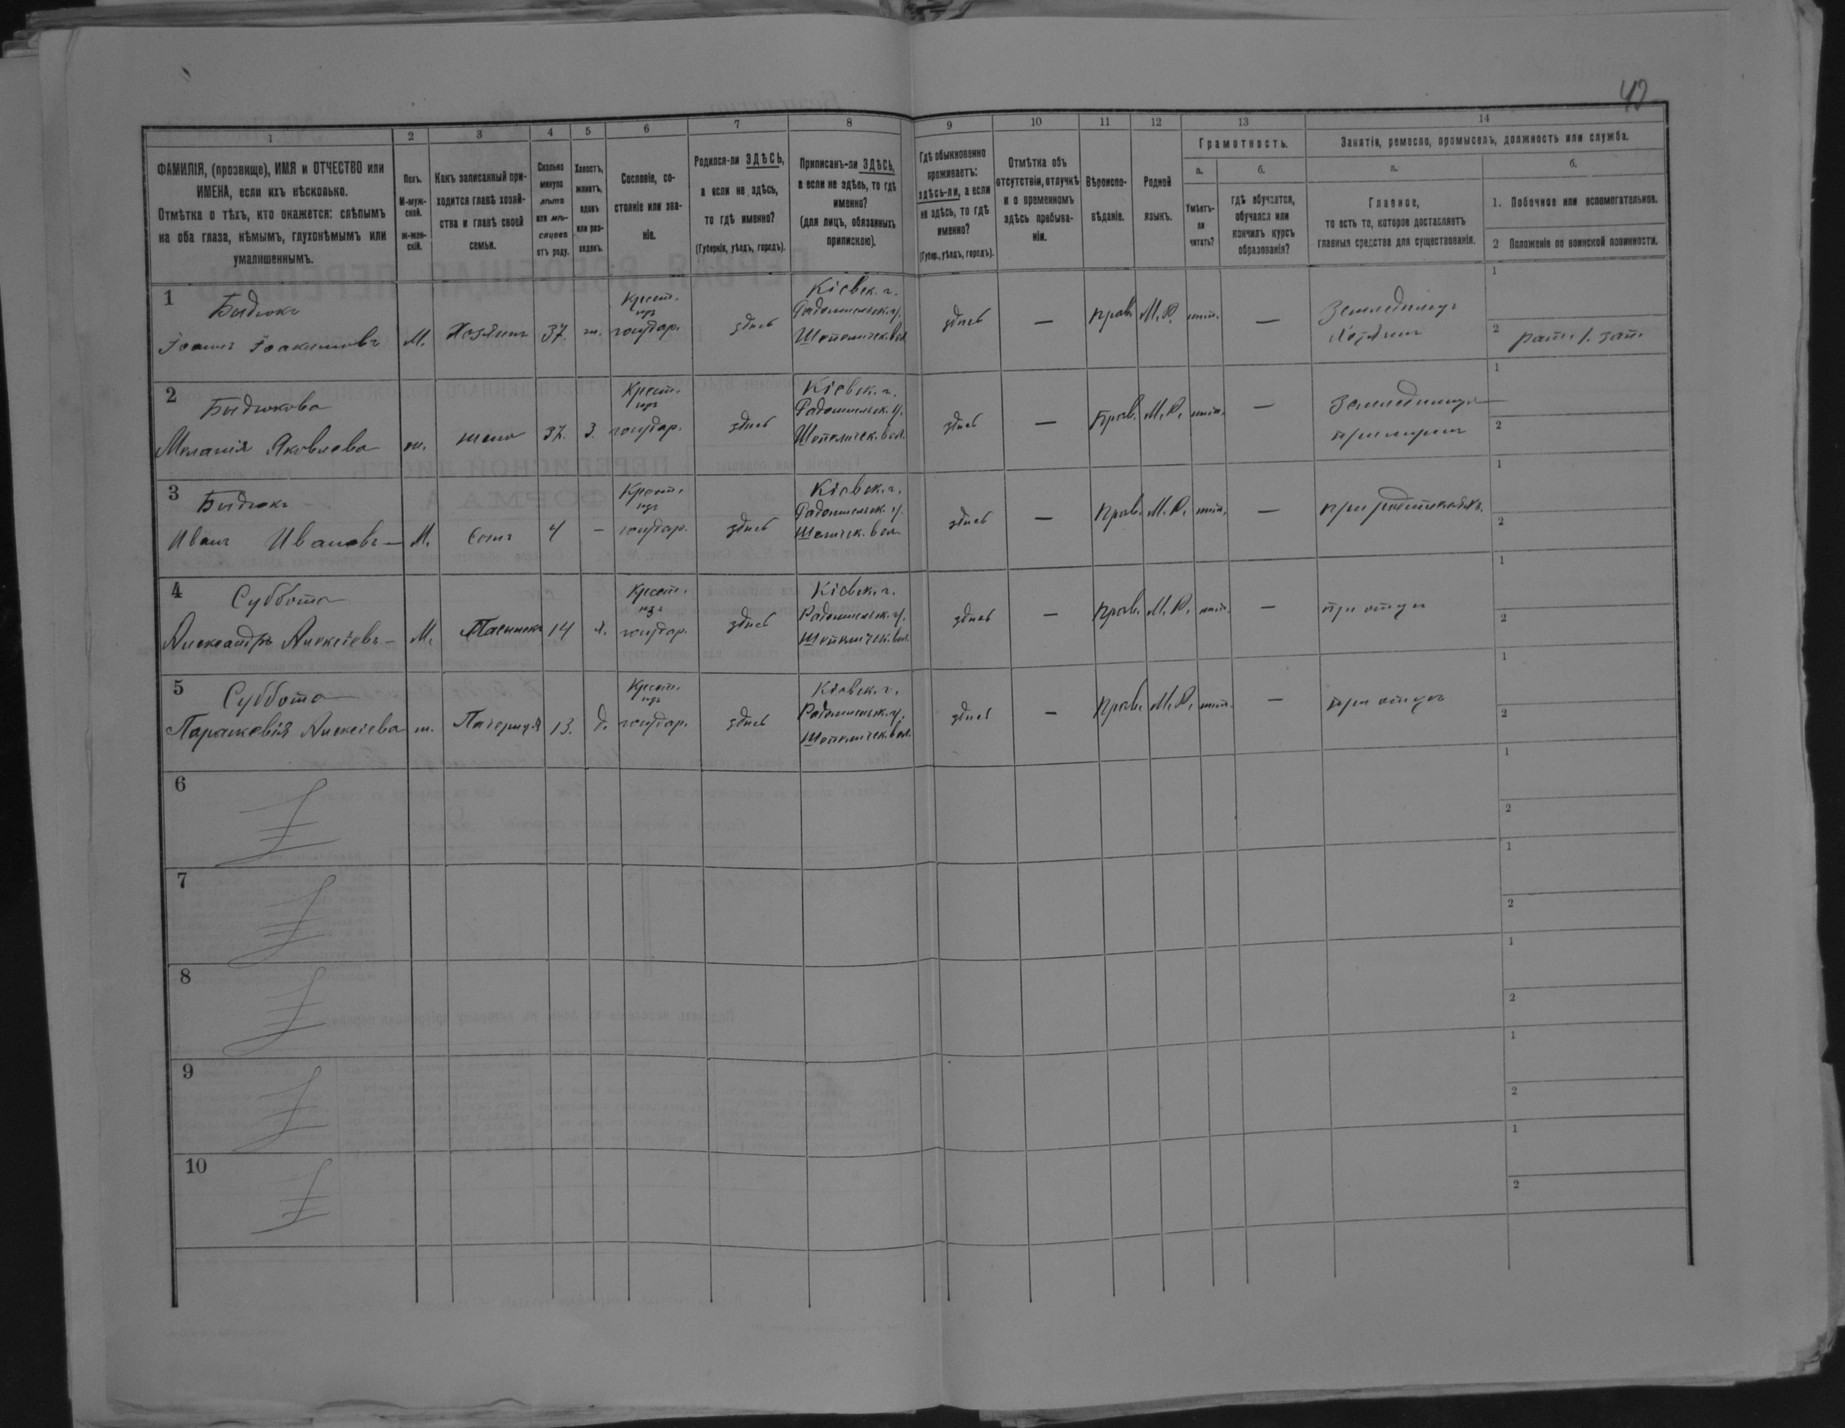 42
1 2 3 4 5 6 7 8 9 10 11 12 13 14
ФАМИЛІЯ, (прозвище), ИМЯ и ОТЧЕСТВО или
ИМЕНА, если ихъ нѣсколько.
Отмѣтка о тѣхъ, кто окажется: слѣпымъ
на оба глаза, нѣмымъ, глухонѣмымъ или
умалишеннымъ.
Полъ.
М-муж-
ской.
ж-жен-
скій.
Какъ записанный при-
ходится главѣ хозяй-
ства и главѣ своей
семьи.
Сколько
минуло
лѣтъ
или мѣ-
сяцевъ
отъ роду.
Холостъ,
женатъ,
вдовъ
или раз-
веденъ.
Сословіе, со-
стояніе или зва-
ніе.
Родился-ли ЗДѢСЬ,
а если не здѣсь,
то гдѣ именно?
(Губернія, уѣздъ, городъ).
Приписанъ-ли ЗДѢСЬ,
а если не здѣсь, то гдѣ
именно?
(для лицъ, обязанныхъ
припискою).
Гдѣ обыкновенно
проживаетъ:
здѣсь-ли, а если
не здѣсь, то гдѣ
именно?
(Губер., уѣздъ, городъ).
Отмѣтка объ
отсутствіи, отлучкѣ
и о временномъ
здѣсь пребыва-
ніи.
Вѣроиспо-
вѣданіе.
Родной
языкъ.
Грамотность.
а.
Умѣетъ-
ли
читать?
б.
гдѣ обучается,
обучался или
кончилъ курсъ
образованія?
Занятіе, ремесло, промыселъ, должность или служба.
а.
Главное,
то есть то, которое доставляетъ
главныя средства для существованія.
б.
1. Побочное или вспомогательное.
2 Положеніе по воинской повинности.
1
Бидюкъ
Іоаннъ Іоакимовъ
М.
Хозяинъ
37.
ж.
Крест.
изъ
государ.
здѣсь
Кіевск. г.
Радомысльск. у.
здѣсь
—
Прав.
М. Р.
—
Хозяинъ
1
2
2
Бидюкова
Меланія Яковлева
ж.
жена
37.
З.
Крест.
изъ
государ.
здѣсь
Кіевск. г.
Радомысльск. у.
здѣсь
—
Прав.
М. Р.
—
1
2
3
Бидюкъ
Иванъ Ивановъ—
М.
Сынъ
4
—
Крест.
изъ
государ.
здѣсь
Кіевск. г.
Радомысльск. у.
здѣсь
—
Прав.
М. Р.
—
1
2
4
Суббота
Александръ Алексѣевъ—
М.
Пасынокъ
14
Крест.
изъ
государ.
здѣсь
Кіевск. г.
Радомысльск. у.
здѣсь
—
Прав.
М. Р.
—
при отцѣ
1
2
5
Суббота
Параскевія Алексѣева
ж.
Падчерица
13.
Д.
Крест.
изъ
государ.
здѣсь
Кіевск. г.
Радомысльск. у.
здѣсь
—
Прав.
М. Р.
—
при отцѣ
1
2
6
1
2
7
1
2
8
1
2
9
1
2
10
1
2